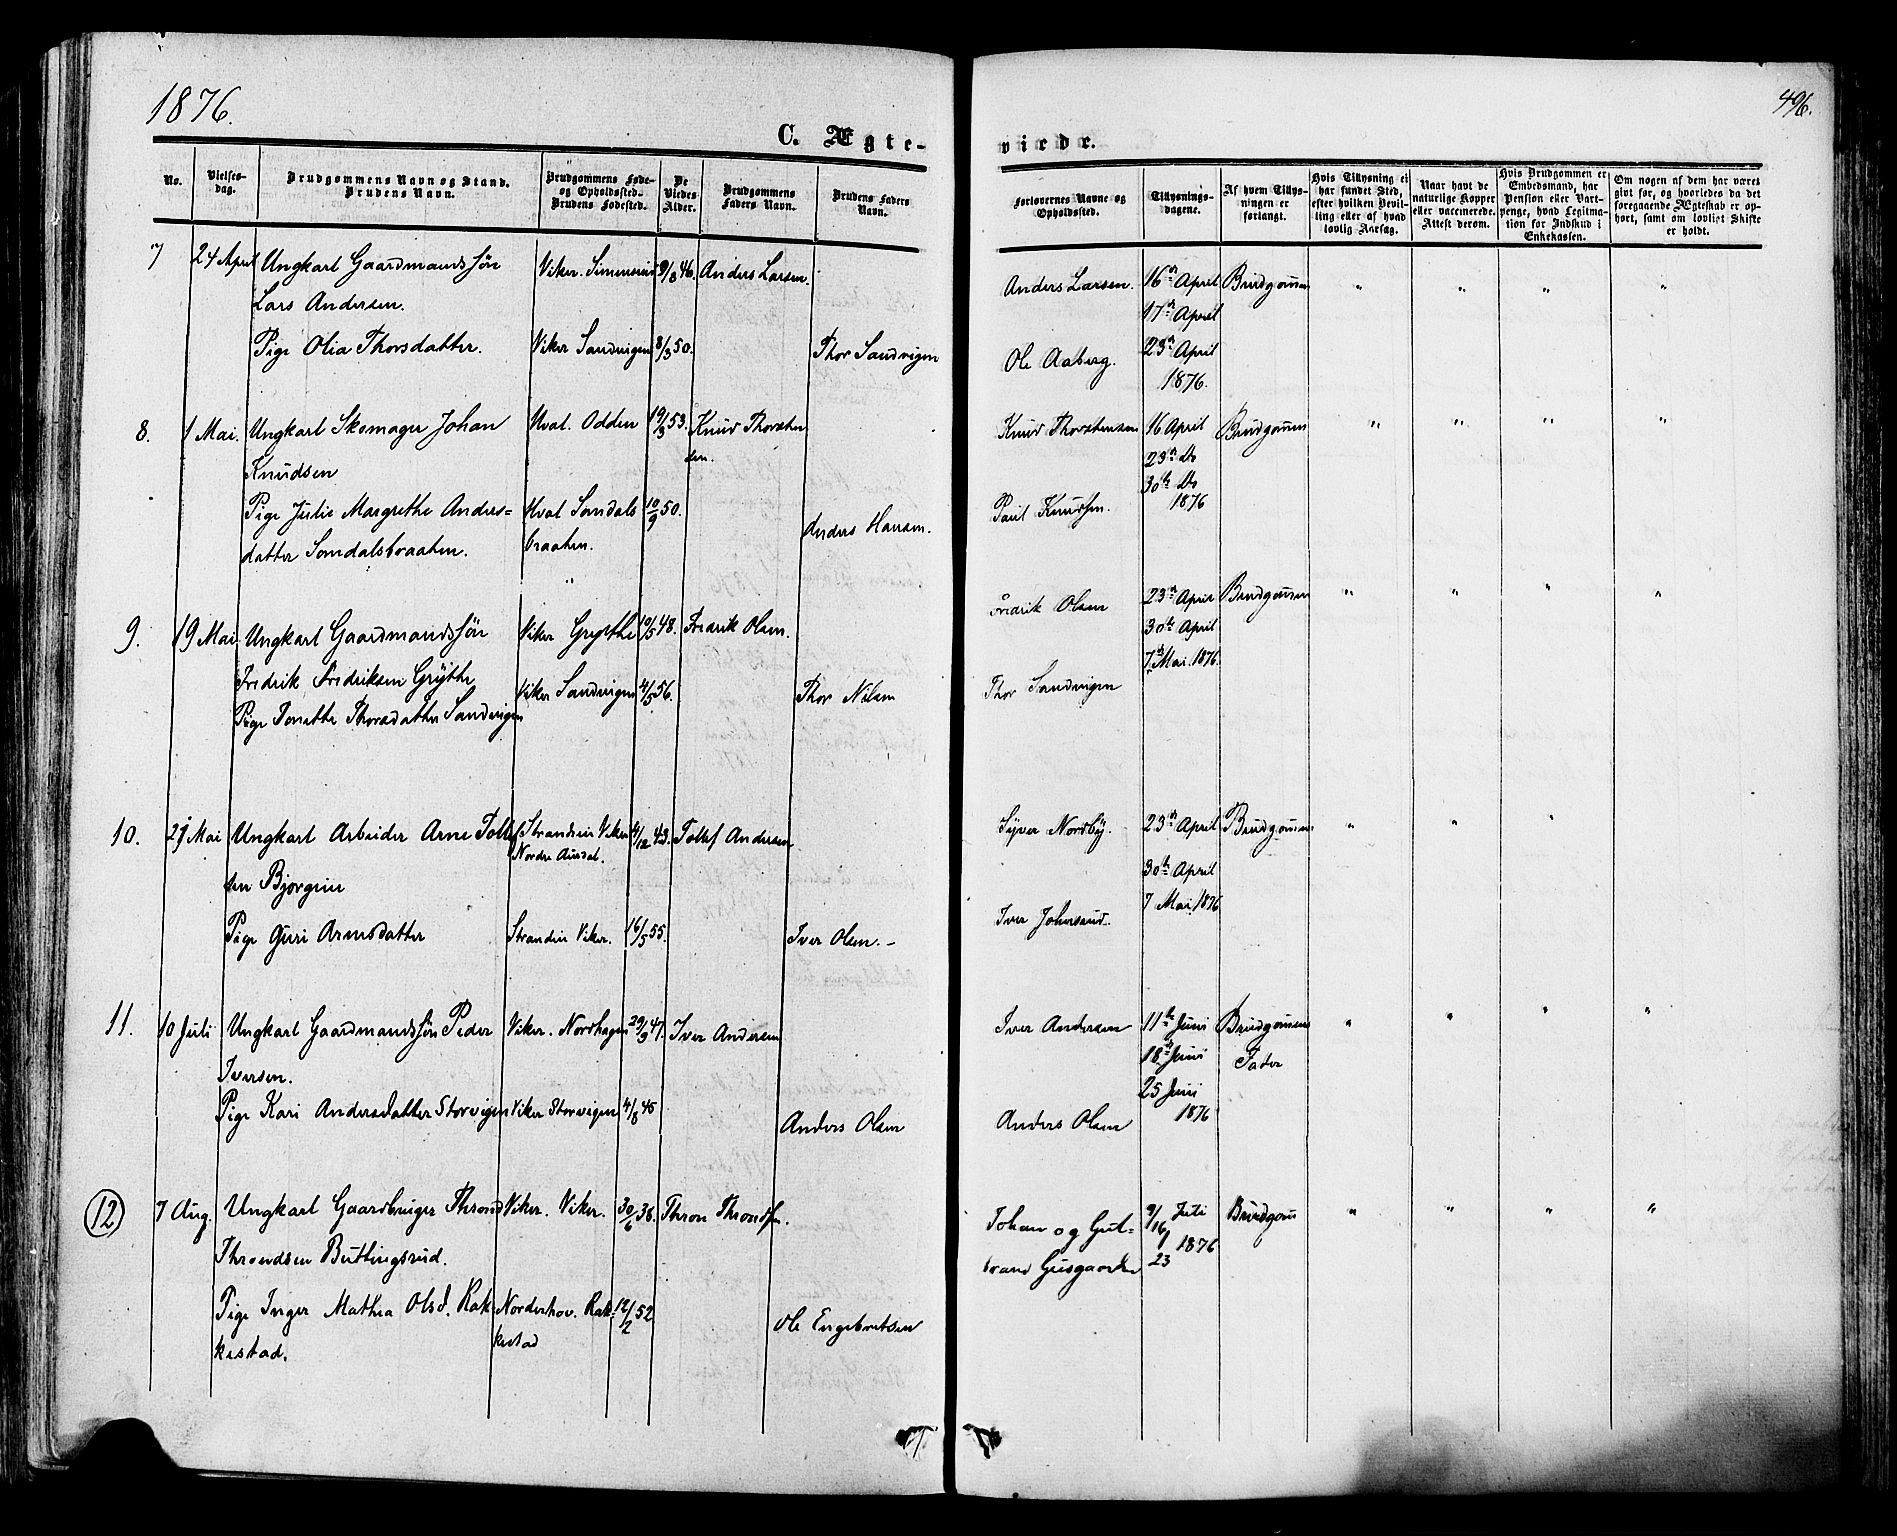 1876.
496.
C. Ægte-
viede.
No.
Vielses-
dag.
Brudgommens Navn og Stand.
Brudens Navn.
Brudgommens Føde-
og Opholdssted.
Brudens Fødested.
De
Viedes
Alder.
Brudgommens
Faders Navn.
Brudens Faders
Navn.
Forlovernes Navne og
Opholdssted.
Tillysnings-
dagene.
Af hvem Tillys-
ningen er
forlangt.
Hvis Tillysning ei
har fundet Sted,
efter hvilken Bevil-
ling eller af hvad
lovlig Aarsag.
Naar havt de
naturlige Kopper
eller vaccinerede.
Attest derom.
Hvis Brudgommen er
Embedsmand, har
Pension eller Vart-
penge, hvad Legitima-
tion for Indskud i
Enkekassen.
Om nogen af dem har været
givt før, og hvorledes da det
foregaaende Ægteskab er op-
hørt, samt om lovligt Skifte
er holdt.
7 24 April Ungkarl Gaardmandssøn Viker. Simensrud 9/8 46. Anders Larsen.
Lars Andersen.
Pige Olia Thorsdatter. Viker Sandvigen 8/3 50. Thor Sandvigen
Anders Larsen. 16de April Brudgommen " " " "
17de April
Ole Aaberg. 23de April
1876.
8. 1 Mai. Ungkarl Skomager Johan Hval. Odden 19/3 53. Knud Thorsten
sen.
Knudsen
Pige Julie Margrethe Anders= Hval Somdals 10/9 50. Anders Hansen.
datter Somdalsbraaten. braaten.
"
Knud Thorstensen 16 April Brudgommen " " " "
23de Do
30te Do
Paul Knudsen. 1876
9. 19 Mai Ungkarl Gaardmandssøn Viker Grythe 10/5 48. Fredrik Olsen.
Fredrik Fredriksen Grythe
Pige Jonette Thorsdatter Sandvigen Viker Sandvigen 4/5 56. Thor Nilsen
Fredrik Olsen 23de April Brudgommen " " " "
30te April
Thor Sandvigen 7de Mai 1876.
10. 29 Mai Ungkarl Arbeider Arne Tollef Strandeie Viker 4/12 43. Tollef Andersen
Nordre Aurdal.
sen Bjørgeeie
Pige Guri Arnesdatter Strandeie Viker. 16/5 55. Iver Olsen. -
Syver Nordby. 23de April Brudgommen " " "
30te April
Iver Johnsrud. 7 Mai 1876
11. 10 Juli Ungkarl Gaardmandssøn Peder Viker. Nordhagen 29/3 47. Iver Andersen
Iversen.
Pige Kari Andersdatter Storvigen Viker Storvigen 4/8 45 Anders Olsen
Iver Andersen 11te Juni Brudgommens " " " "
18de Juni Fader
25 Juni
Anders Olsen 1876
12 7 Aug. Ungkarl Gaardbruger Thrond Viker. Viker. 30/6 38. Thron Throndsen.
Throndsen Buttingsrud.
Pige Inger Mathea Olsd. Rak- Norderhov. Rak- 12/2 52 Ole Engebretsen
kestad. kestad
Johan og Gut- 9/16/23 Juli 1876 Brudgom " " " "
brand Gusgaarden